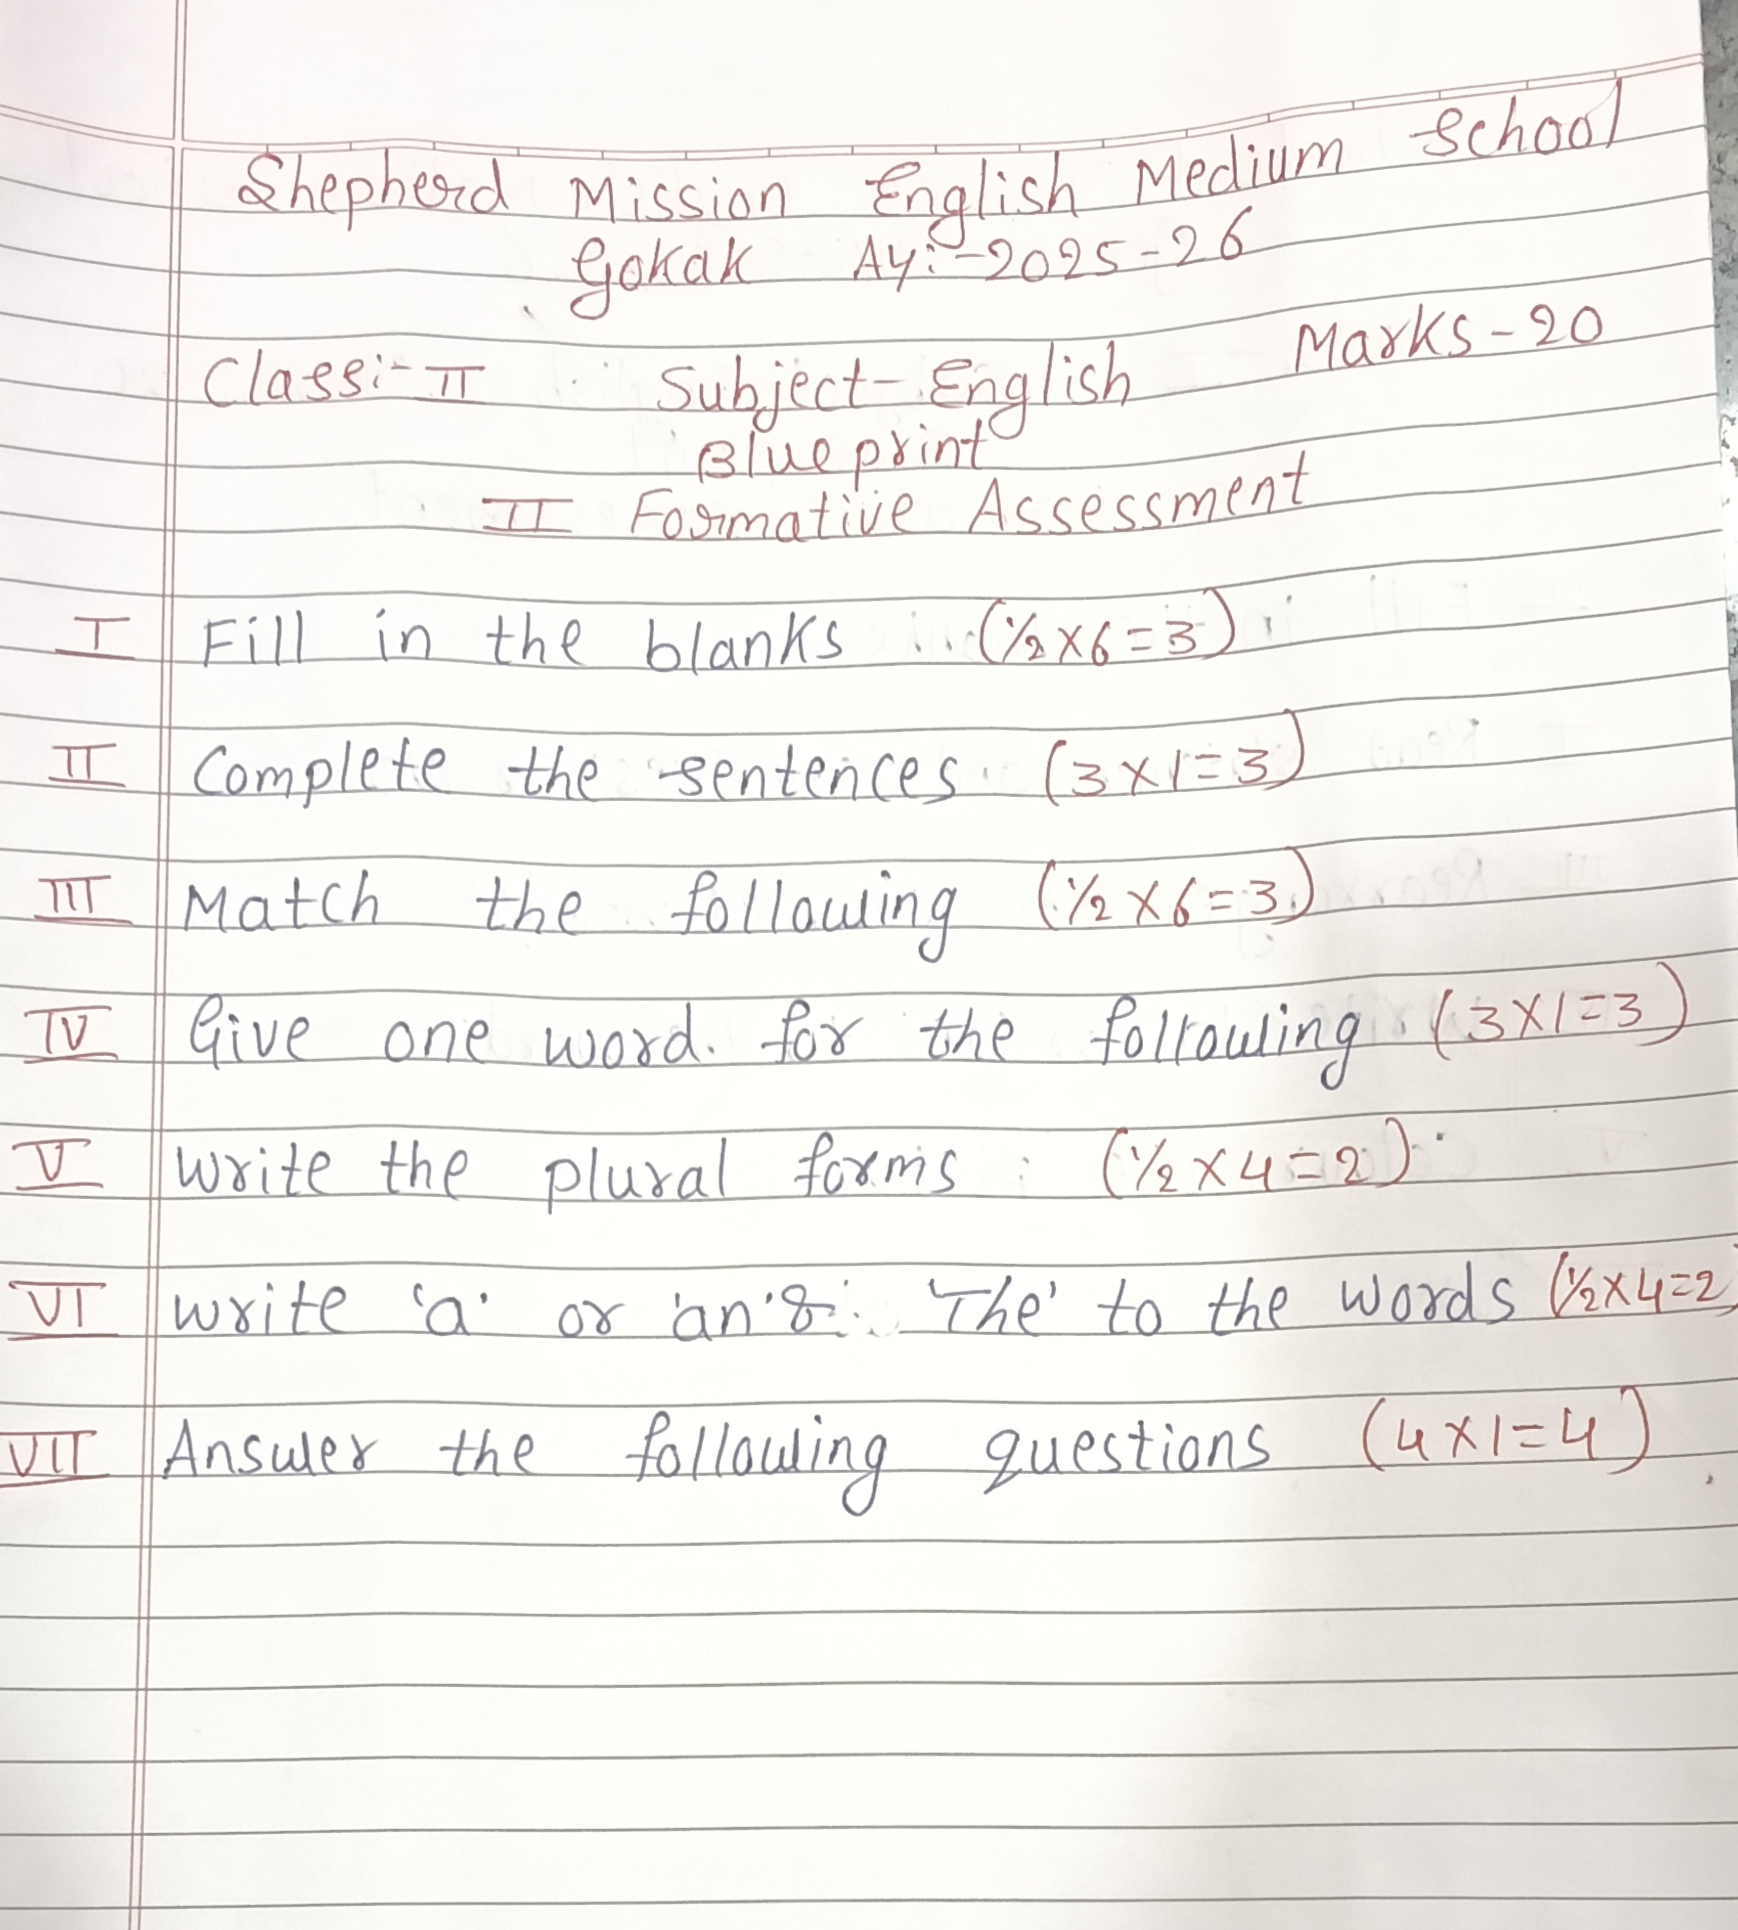 Shepherd Mission English Medium School
Gokak Ay:-2025-26
Marks-20
Class:-II Subject-English
Blue print
II Formative Assessment
I Fill in the blanks (½x6=3)
II Complete the sentences. (3x1=3)
III Match the following (½x6=3)
IV Give one word. for the following (3x1=3)
V Write the plural forms (½x4=2)
VI write 'a' or 'an' & 'The' to the words (½x4=2)
VII Answer the following questions (4x1=4)